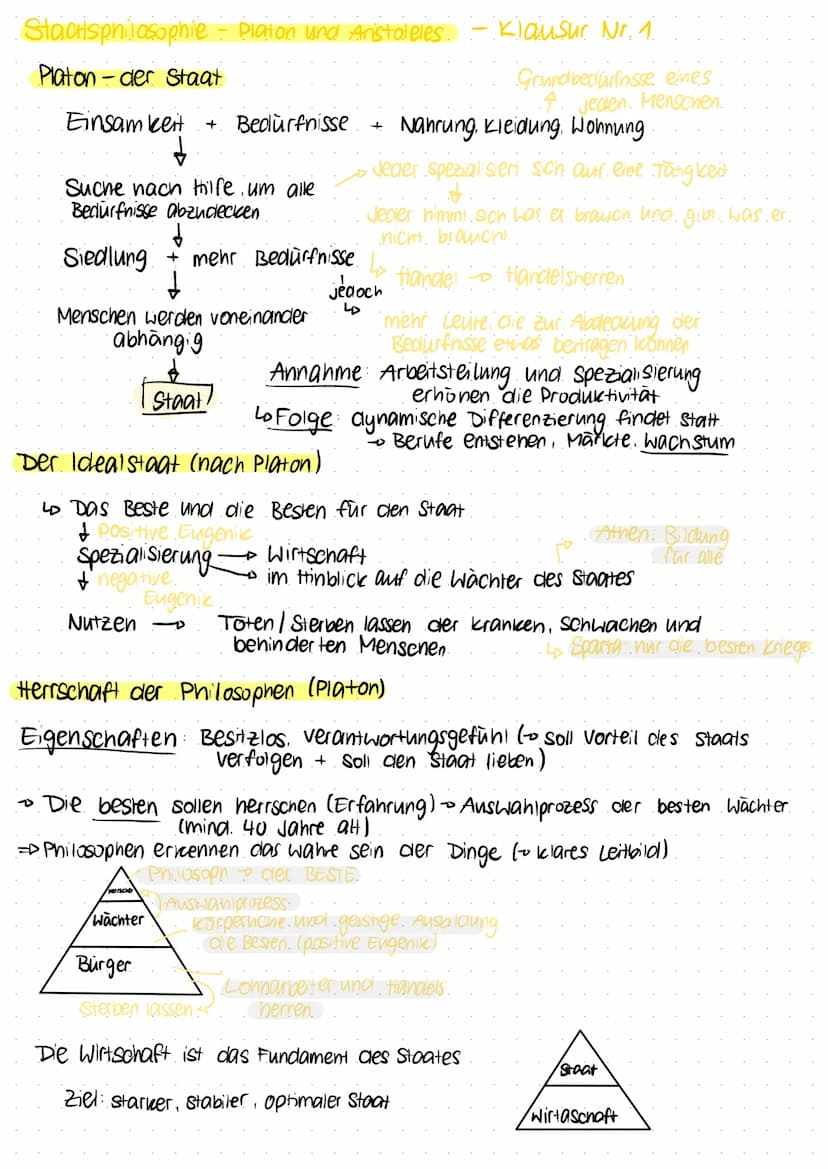 Staatsphilosophie - Platon und Aristoteles. - Klausur Nr. 1
Platon - der Staat
Grundbedürfnisse eines
jeden Menschen.
Einsamkeit + Bedürfnisse + Nahrung, Kleidung, Wohnung
Jeder spezialisiert sich auf eine Tätigkeit
Suche nach Hilfe, um alle
Bedürfnisse abzudecken
Jeder nimmt sich was er brauch und gibt was er
nicht braucht
Siedlung + mehr Bedürfnisse
Handel → Handelsherren
jedoch
Menschen werden voneinander
abhängig
mehr Leute, die zur Abdeckung der
Bedürfnisse etwas beitragen können
Staat
Annahme: Arbeitsteilung und Spezialisierung
erhöhen die Produktivität
↳ Folge: dynamische Differenzierung findet statt
→ Berufe entstehen, Märkte, Wachstum
Der Idealstaat (nach Platon)
↳ Das Beste und die Besten für den Staat
↓ positive Eugenik
Athen: Bildung
für alle
Spezialisierung → Wirtschaft
→ im Hinblick auf die Wächter des Staates
↓ negative
Eugenik
Nutzen → Töten / Sterben lassen der kranken, schwachen und
behinderten Menschen
↳ Sparta nur die besten Krieger
Herrschaft der Philosophen (Platon)
Eigenschaften: Besitzlos, verantwortungsgefühl (→ soll Vorteil des Staats
verfolgen + soll den Staat lieben)
→ Die besten sollen herrschen (Erfahrung) → Auswahlprozess der besten Wächter
(mind. 40 Jahre alt)
⇒ Philosophen erkennen das wahre sein der Dinge (→ klares Leitbild)
Philosoph → der BESTE
Auswahlprozess
Wächter
körperliche und geistige Ausbildung
die Besten (positive Eugenik)
Bürger
Lohnarbeiter und Handels
herren
Sterben lassen
Die Wirtschaft ist das Fundament des Staates
Staat
Ziel: starker, stabiler, optimaler Staat
Wirtschaft